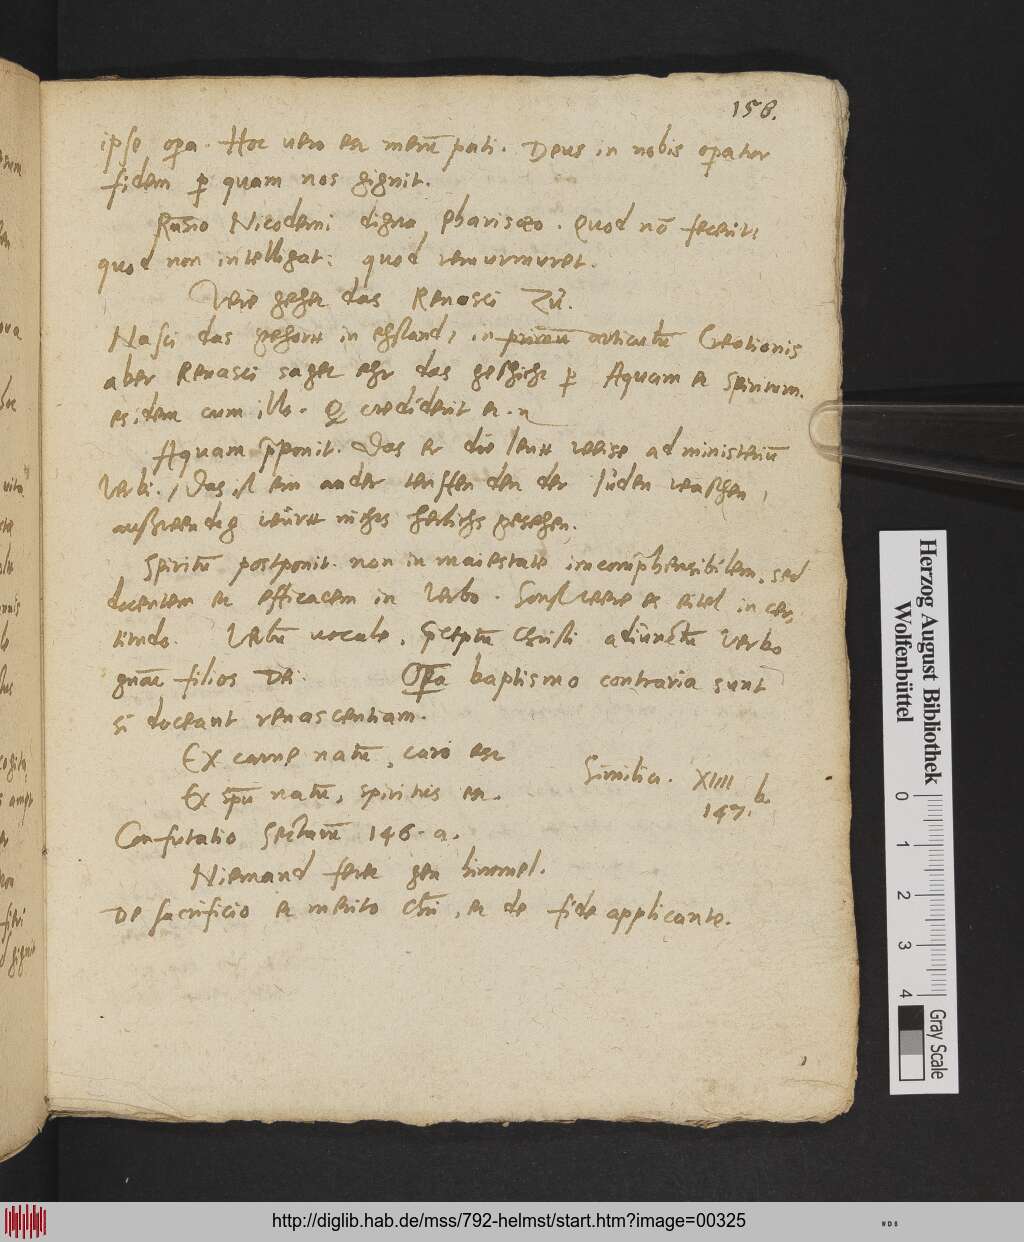 158.
ipse opa. Hoc vero est merū pati. Deus in nobis operatur
fidem p quam nos gignit.
Rasio Nicodemi digna Pharisæo. Quod nō fecerit:
quod non intelligat: quod remurmuret.
Wie gehet das Renasci Zů.
Nasci das gehortt in ehstand, in primū articulū Creationis
aber Renasci saget ehr das geschicht p Aquam et Spiritum.
es idem cum illo. Q crediderit et.
Aquam p̄ponit. Das er die leutt weise ad ministeriū
Verbi. / Das ist ein ander teuffen den der Jüden waschen,
außwendig wůrtt nichts herlichs gesehen.
Spiritū postponit. non in maiestate incomp̄hensibilem, sed
docentem et efficacem in Verbo. Sonst were es eitel in cer,
titudo. Verbū vocale, p̄ceptū Christi adiunctū Verbo
gnāt filios Dei. Opa baptismo contraria sunt
si doceant renascentiam.
Ex carne natū, caro est
Ex spū natū, spiritus est.
Similia. XIIII b.
147.
Confutatio Sectarū 146. a.
Niemand feret gen himmel.
De sacrificio et merito Chri, et de fide applicante.
Herzog August Bibliothek
Wolfenbüttel
0 1 2 3 4
Gray Scale
http://diglib.hab.de/mss/792-helmst/start.htm?image=00325
WDB